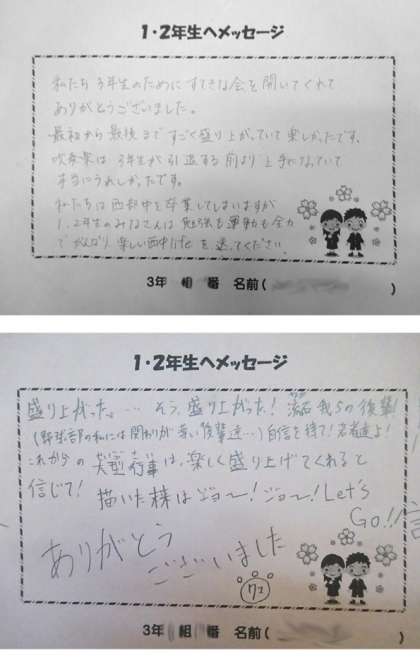 1・2年生へメッセージ
私たち3年生のためにすてきな会を開いてくれて
ありがとうございました。
最初から最後まですごく盛り上がっていて楽しかったです。
吹奏楽は3年生が引退する前より上手になっていて
本当にうれしかったです。
私たちは西部中を卒業してしまいますが
1、2年生のみなさんは勉強も運動も全力
でがんばり、楽しい西中lifeを送ってください。
3年 組 番 名前( )
1・2年生へメッセージ
盛り上がった。… そう、盛り上がった! 流石 我らの後輩!
(野球部の私には関わりが 後輩達…)自信を持て!若者達よ!
これからの 大型行事は、楽しく盛り上げてくれると
信じて! 描いた 株はジョー!ジョー!Let's
Go!!
ありがとう
ございました
3年 組 番 名前( )